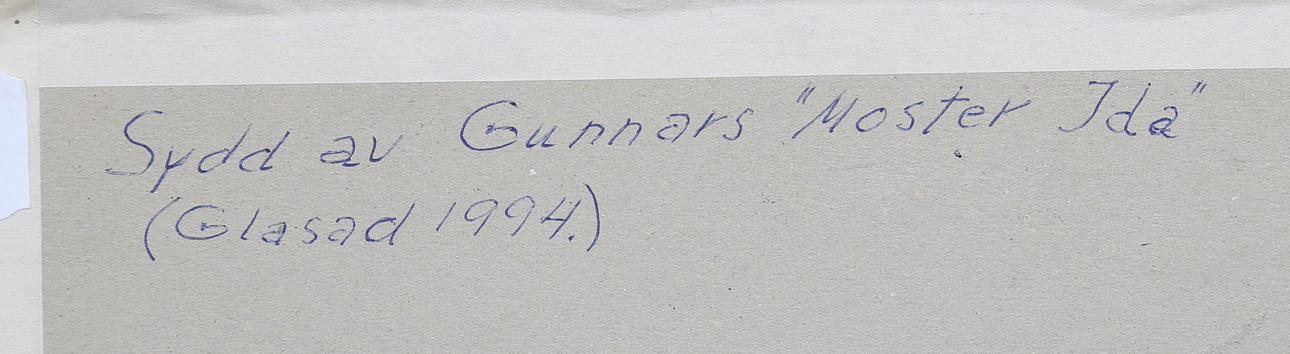 Sydd av Gunnars "Moster Ida"
(Glasad 1994.)